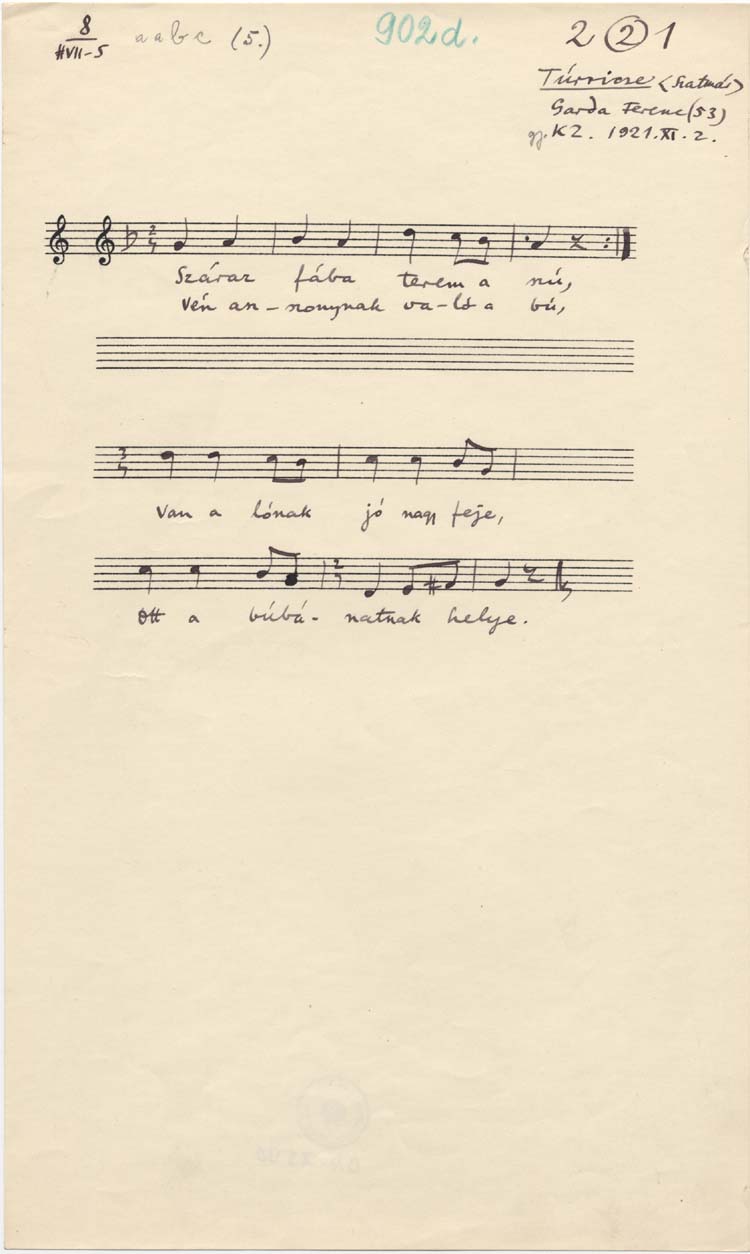 8
#VII-5
a a b c (5.)
902d.
2 ② 1
Túrricse <Szatmár>
Garda Ferenc (53)
gy. KZ. 1921.XI.2.
2
4
Száraz fába terem a szú,
Vén asz-szonynak va-ló a bú,
3
4
Van a lónak jó nagy feje,
2
4
Ott a búbá- natnak helye.